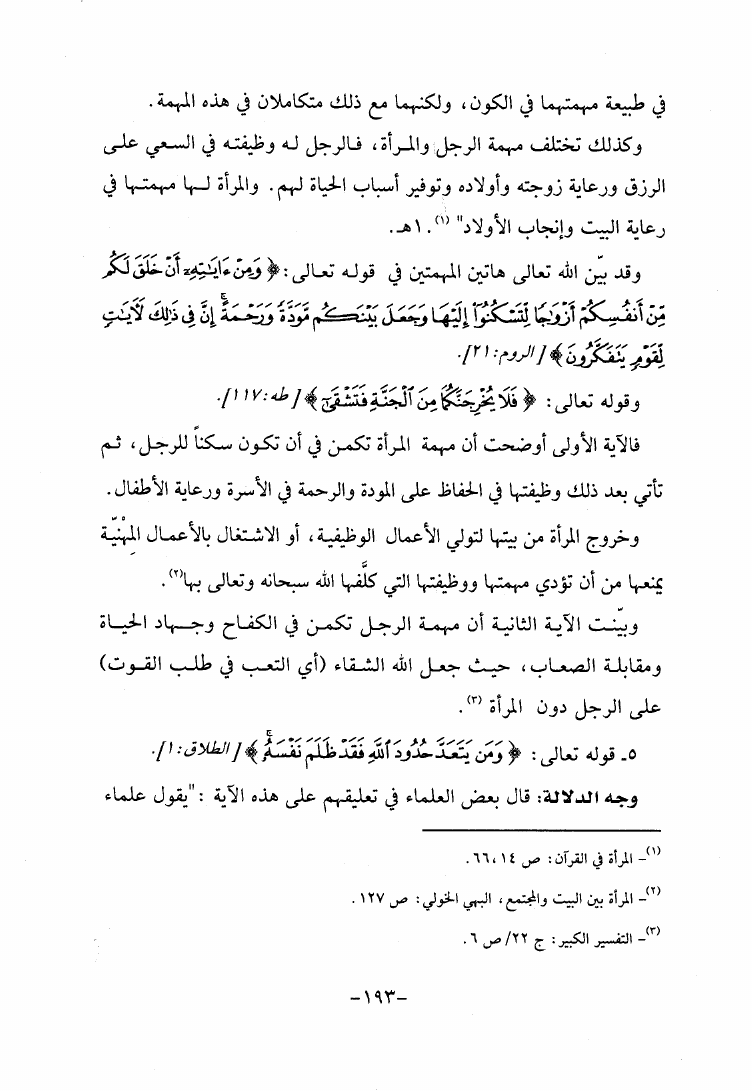 في طبيعة مهمتهما في الكون، ولكنهما مع ذلك متكاملان في هذه المهمة.
وكذلك تختلف مهمة الرجل والمرأة، فالرجل له وظيفته في السعي على
الرزق ورعاية زوجته وأولاده وتوفير أسباب الحياة لهم. والمرأة لها مهمتها في
رعاية البيت وإنجاب الأولاد" (١). ١هـ.
وقد بيّن الله تعالى هاتين المهمتين في قوله تعالى: ﴿ وَمِنْ ءَايَـٰتِهِۦٓ أَنْ خَلَقَ لَكُم
مِّنْ أَنفُسِكُمْ أَزْوَٰجًا لِّتَسْكُنُوٓا۟ إِلَيْهَا وَجَعَلَ بَيْنَكُم مَّوَدَّةً وَرَحْمَةً ۚ إِنَّ فِى ذَٰلِكَ لَـَٔايَـٰتٍ
لِّقَوْمٍ يَتَفَكَّرُونَ ﴾ [الروم: ٢١].
وقوله تعالى: ﴿ فَلَا يُخْرِجَنَّكُمَا مِنَ ٱلْجَنَّةِ فَتَشْقَىٰٓ ﴾ [طه: ١١٧].
فالآية الأولى أوضحت أن مهمة المرأة تكمن في أن تكون سكناً للرجل، ثم
تأتي بعد ذلك وظيفتها في الحفاظ على المودة والرحمة في الأسرة ورعاية الأطفال.
وخروج المرأة من بيتها لتولي الأعمال الوظيفية، أو الاشتغال بالأعمال المِهْنيّة
يمنعها من أن تؤدي مهمتها ووظيفتها التي كلَّفها الله سبحانه وتعالى بها(٢).
وبيّنت الآية الثانية أن مهمة الرجل تكمن في الكفاح وجهاد الحياة
ومقابلة الصعاب، حيث جعل الله الشقاء (أي التعب في طلب القوت)
على الرجل دون المرأة (٣).
٥ـ قوله تعالى: ﴿ وَمَن يَتَعَدَّ حُدُودَ ٱللَّهِ فَقَدْ ظَلَمَ نَفْسَهُۥ ۚ ﴾ [الطلاق: ١].
وجه الدلالة: قال بعض العلماء في تعليقهم على هذه الآية : "يقول علماء
(١)ـ المرأة في القرآن: ص ١٤، ٦٦.
(٢)ـ المرأة بين البيت والمجتمع، البهي الخولي: ص ١٢٧.
(٣)ـ التفسير الكبير: ج ٢٢/ ص ٦.
-١٩٣-